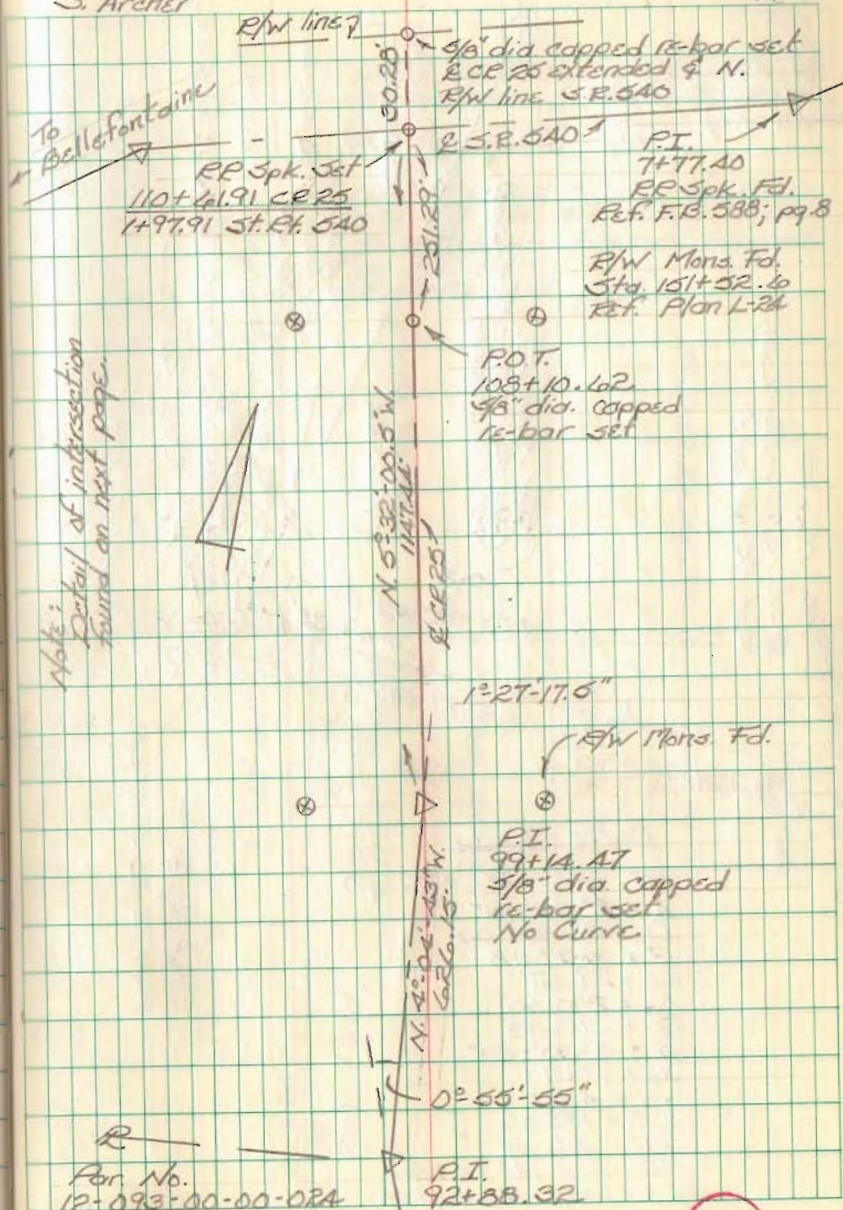 S. Archer
R/W line
5/8" dia. capped re-bar set
℄ CR 25 extended & N.
R/W line S.R. 540
30.28'
To
Bellefontaine
℄ S.R. 540
P.I.
7+77.40
RR Spk. Fd.
Ref. F.B. 588; pg. 8
RR Spk. Set
110+61.91 CR 25
1+97.91 St. Rt. 540
251.29'
R/W Mons. Fd.
Sta. 151+52.6
Ref. Plan L-24
P.O.T.
108+10.62
5/8" dia. capped
re-bar set
Note:
Detail of intersection
found on next page.
N. 5°-32'-00.5" W.
1147.44'
℄ CR 25
1°-27'-17.5"
R/W Mons. Fd.
P.I.
99+14.47
5/8" dia. capped
re-bar set
No Curve
N. 4°-04'-43" W.
626.15'
0°-55'-55"
Par. No.
12-093-00-00-02A
P.I.
92+88.32